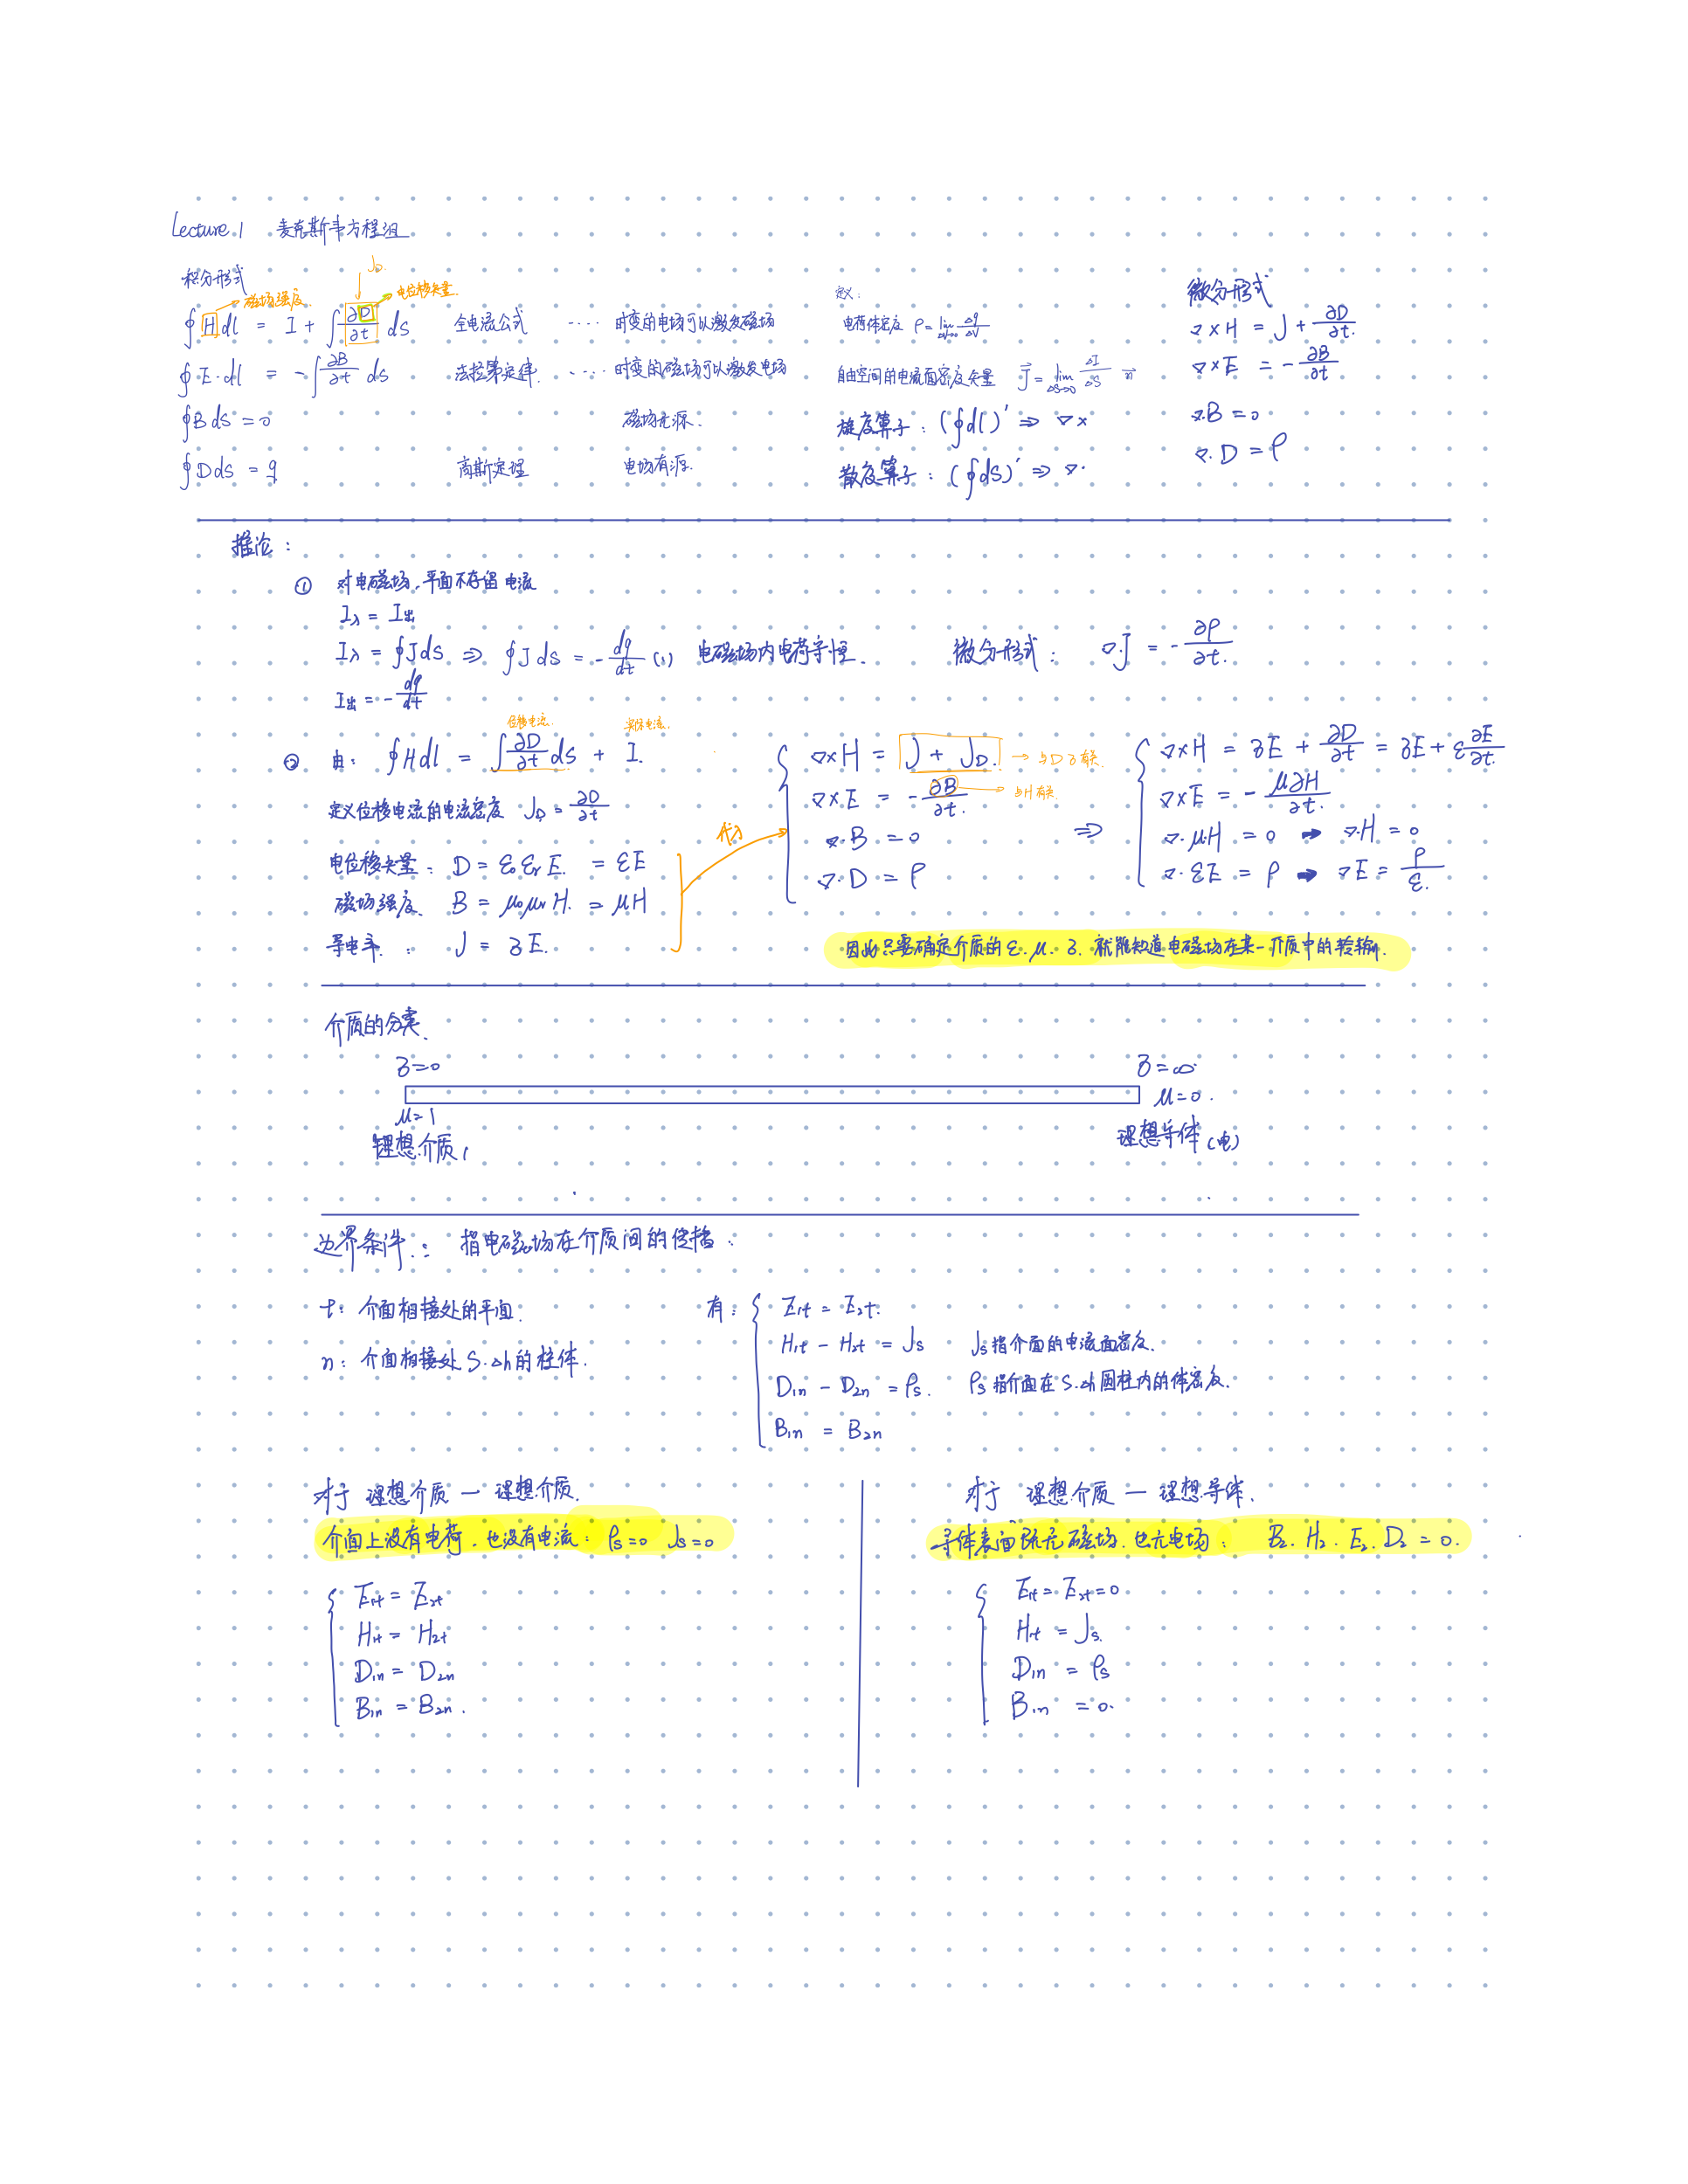 Lecture 1 麦克斯韦方程组
积分形式
J_D
磁场强度 电位移矢量.
∮H dl = I + ∫∂D/∂t ds 全电流公式 ···· 时变的电场可以激发磁场
∮E·dl = -∫∂B/∂t ds 法拉第定律. ···· 时变的磁场可以激发电场
∮B ds = 0 磁场无源.
∮D ds = q 高斯定理 电场有源.
定义:
电荷体密度 ρ = lim Δv→0 Δq/Δv
自由空间的电流面密度矢量 J⃗ = lim Δs→0 ΔI/ΔS n⃗
旋度算子: (∮dl)′ ⇒ ∇×
散度算子: (∮ds)′ ⇒ ∇·
微分形式
∇×H = J + ∂D/∂t.
∇×E = -∂B/∂t
∇·B = 0
∇·D = ρ
推论:
① 对电磁场,平面不存留电流
I入 = I出
I入 = ∮J ds ⇒ ∮J ds = -dq/dt (1) 电磁场内电荷守恒. 微分形式: ∇·J = -∂ρ/∂t.
I出 = -dq/dt
位移电流. 实际电流.
② 由: ∮H dl = ∫∂D/∂t ds + I.
定义位移电流的电流密度 J_D = ∂D/∂t
电位移矢量: D = ε₀εᵣE. = εE
磁场强度. B = μ₀μᵣH. = μH
导电率: J = σE.
代入
∇×H = J + J_D. → 与Dσ有关.
∇×E = -∂B/∂t. → 与H有关.
∇·B = 0
∇·D = ρ
⇒
∇×H = σE + ∂D/∂t = σE + ε∂E/∂t.
∇×E = -μ∂H/∂t.
∇·μH = 0 → ∇·H = 0
∇·εE = ρ → ∇E = ρ/ε.
因此只要确定介质的 ε. μ. σ. 就能知道电磁场在某一介质中的传输.
介质的分类.
σ=0 σ=∞
μ=1 μ=0.
理想介质 理想导体(电)
边界条件: 指电磁场在介质间的传播.
t: 介面相接处的平面.
n: 介面相接处 S·Δh的柱体.
有: E₁t = E₂t.
H₁t - H₂t = Js Js指介面的电流面密度.
D₁n - D₂n = ρs. ρs指介面在S·Δh圆柱内的体密度.
B₁n = B₂n
对于 理想介质 — 理想介质.
介面上没有电荷,也没有电流: ρs=0 Js=0
E₁t = E₂t
H₁t = H₂t
D₁n = D₂n
B₁n = B₂n.
对于 理想介质 — 理想导体.
导体表面既无磁场.也无电场: B₂. H₂. E₂. D₂ = 0.
E₁t = E₂t = 0
H₁t = Js.
D₁n = ρs
B₁n = 0.